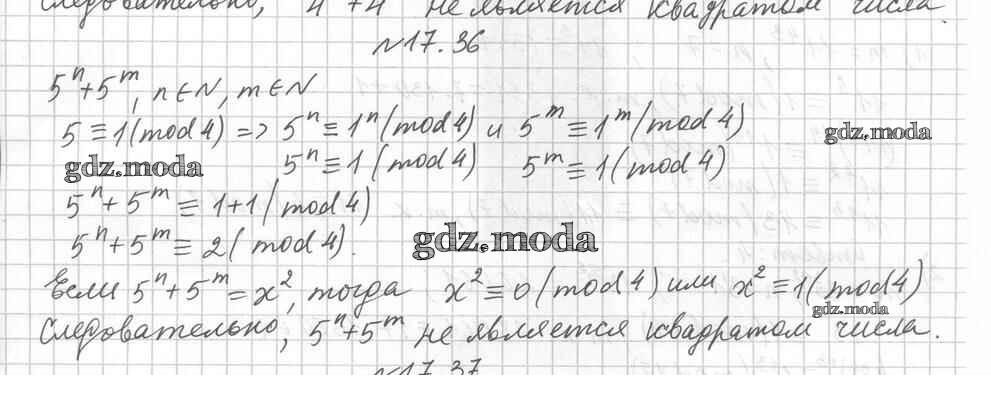 Следовательно, 4 +4 не является квадратом числа.
№17.36
5ⁿ+5ᵐ, n∈N, m∈N
5≡1(mod 4) => 5ⁿ≡1ⁿ(mod 4) и 5ᵐ≡1ᵐ(mod 4)
gdz.moda
gdz.moda
5ⁿ≡1(mod 4) 5ᵐ≡1(mod 4)
5ⁿ+5ᵐ≡1+1(mod 4)
5ⁿ+5ᵐ≡2(mod 4).
gdz.moda
Если 5ⁿ+5ᵐ=x², тогда x²≡0(mod 4) или x²≡1(mod 4)
gdz.moda
Следовательно, 5ⁿ+5ᵐ не является квадратом числа.
№17.37